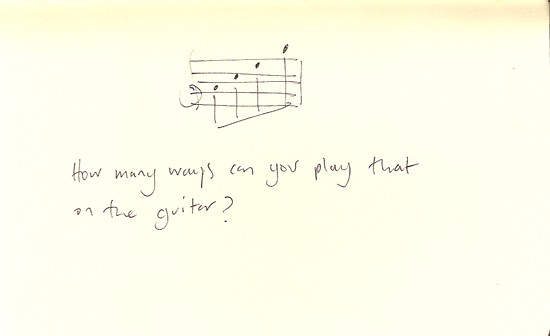 How many ways can you play that
on the guitar?